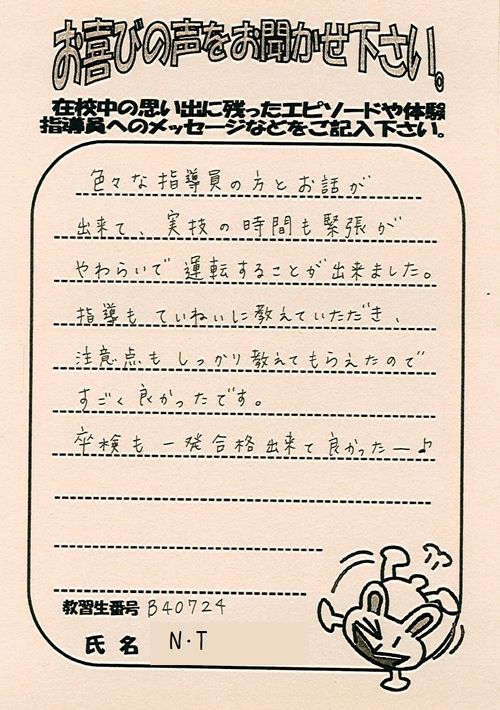 お喜びの声をお聞かせ下さい。
在校中の思い出に残ったエピソードや体験
指導員へのメッセージなどをご記入下さい。
色々な指導員の方とお話が
出来て、実技の時間も緊張が
やわらいで運転することが出来ました。
指導もていねいに教えていただき、
注意点もしっかり教えてもらえたので
すごく良かったです。
卒検も一発合格出来て良かったー♪
教習生番号 B40724
氏名 N・T